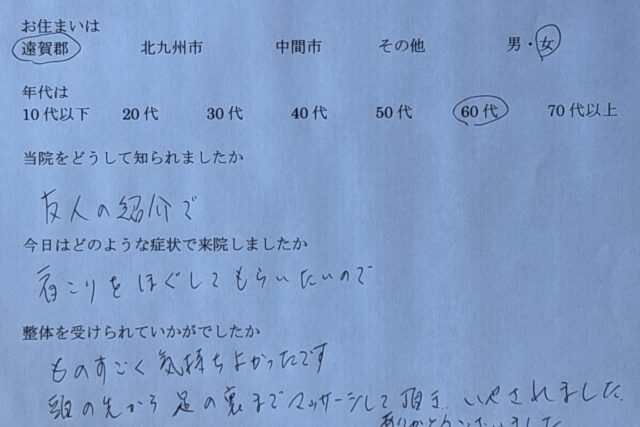 お住まいは
遠賀郡 北九州市 中間市 その他 男・女
年代は
10代以下 20代 30代 40代 50代 60代 70代以上
当院をどうして知られましたか
友人の紹介で
今日はどのような症状で来院しましたか
肩こりをほぐしてもらいたいので
整体を受けられていかがでしたか
ものすごく気持ちよかったです
頭の先から足の裏までマッサージして頂き、いやされました。
ありがとうございました